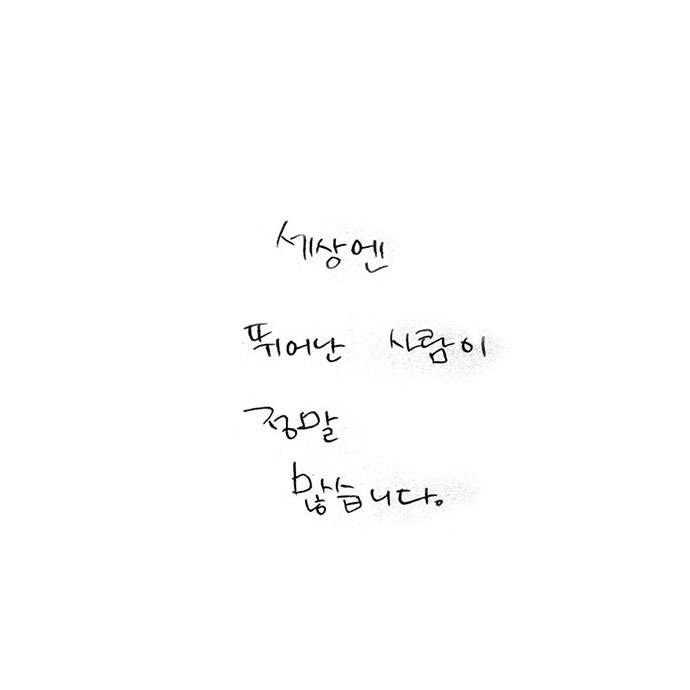 세상엔
뛰어난 사람이
정말
많습니다.